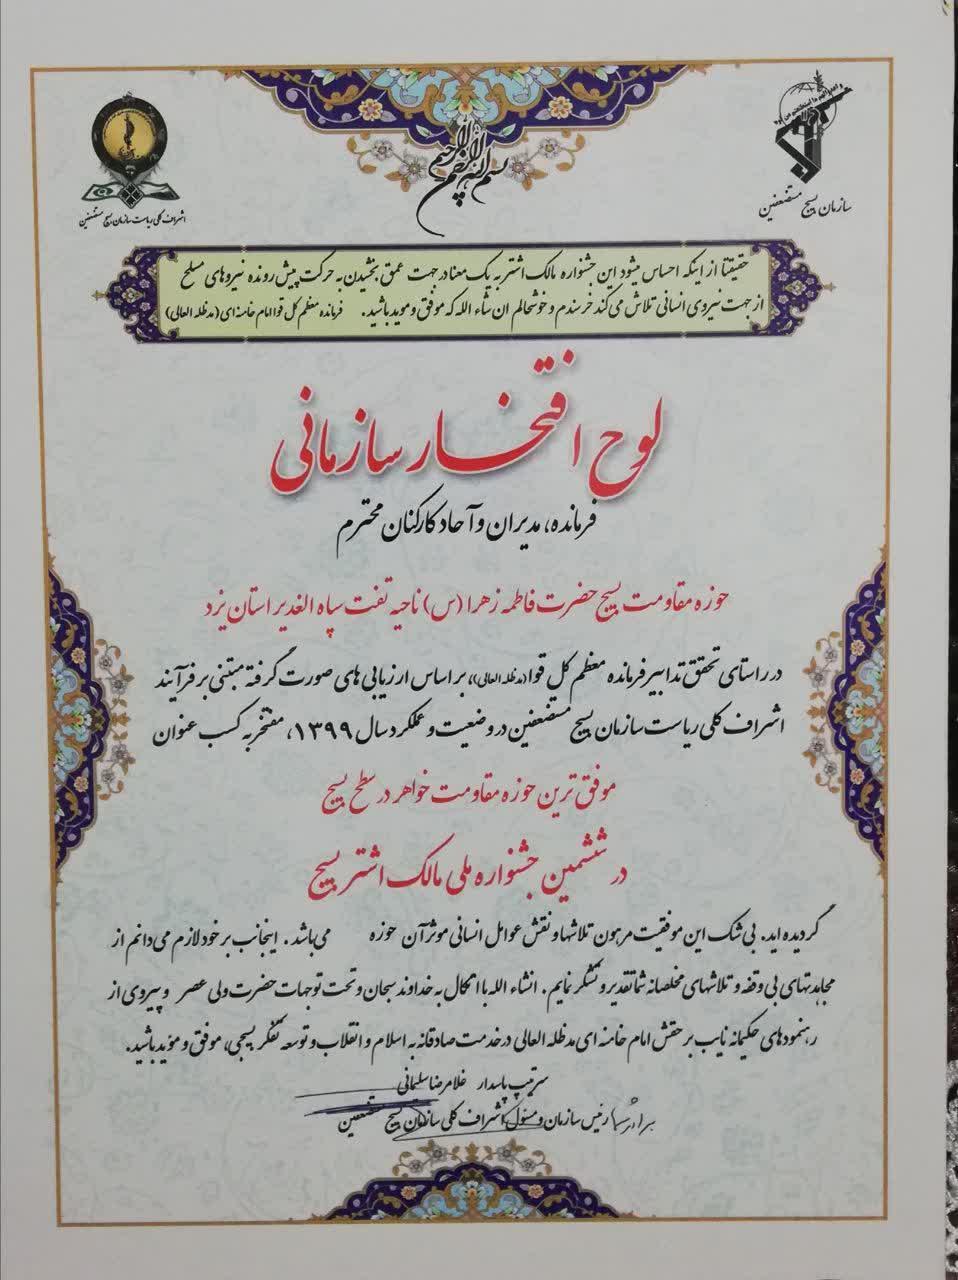 بسم الله الرحمن الرحیم
سازمان بسیج مستضعفین
اشراف کلی ریاست سازمان بسیج مستضعفین
حقیقتا از اینکه احساس میشود این جشنواره مالک اشتر به یک معنا در جهت عمق بخشیدن به حرکت پیش رونده نیروهای مسلح
از جهت نیروی انسانی تلاش می کند خرسندم و خوشحالم ان شاء الله که موفق و موید باشید. فرمانده معظم کل قوا امام خامنه ای (مدظله العالی)
لوح افتخار سازمانی
فرمانده، مدیران و آحاد کارکنان محترم
حوزه مقاومت بسیج حضرت فاطمه زهرا (س) ناحیه تفت سپاه الغدیر استان یزد
در راستای تحقق تدابیر فرمانده معظم کل قوا (مدظله العالی)، بر اساس ارزیابی های صورت گرفته مبتنی بر فرآیند
اشراف کلی ریاست سازمان بسیج مستضعفین در وضعیت و عملکرد سال ۱۳۹۹، مفتخر به کسب عنوان
موفق ترین حوزه مقاومت خواهر در سطح بسیج
در ششمین جشنواره ملی مالک اشتر بسیج
گردیده اید. بی شک این موفقیت مرهون تلاشها و نقش عوامل انسانی موثر آن حوزه می باشد. اینجانب بر خود لازم می دانم از
مجاهدتهای بی وقفه و تلاشهای مخلصانه شما تقدیر و تشکر نمایم. انشاء الله با اتکال به خداوند سبحان و تحت توجهات حضرت ولی عصر و پیروی از
رهنمودهای حکیمانه نایب بر حقش امام خامنه ای مدظله العالی در خدمت صادقانه به اسلام و انقلاب و توسعه تفکر بسیجی، موفق و موید باشید.
سرتیپ پاسدار غلامرضا سلیمانی
رئیس سازمان و مسئول اشراف کلی سازمان بسیج مستضعفین